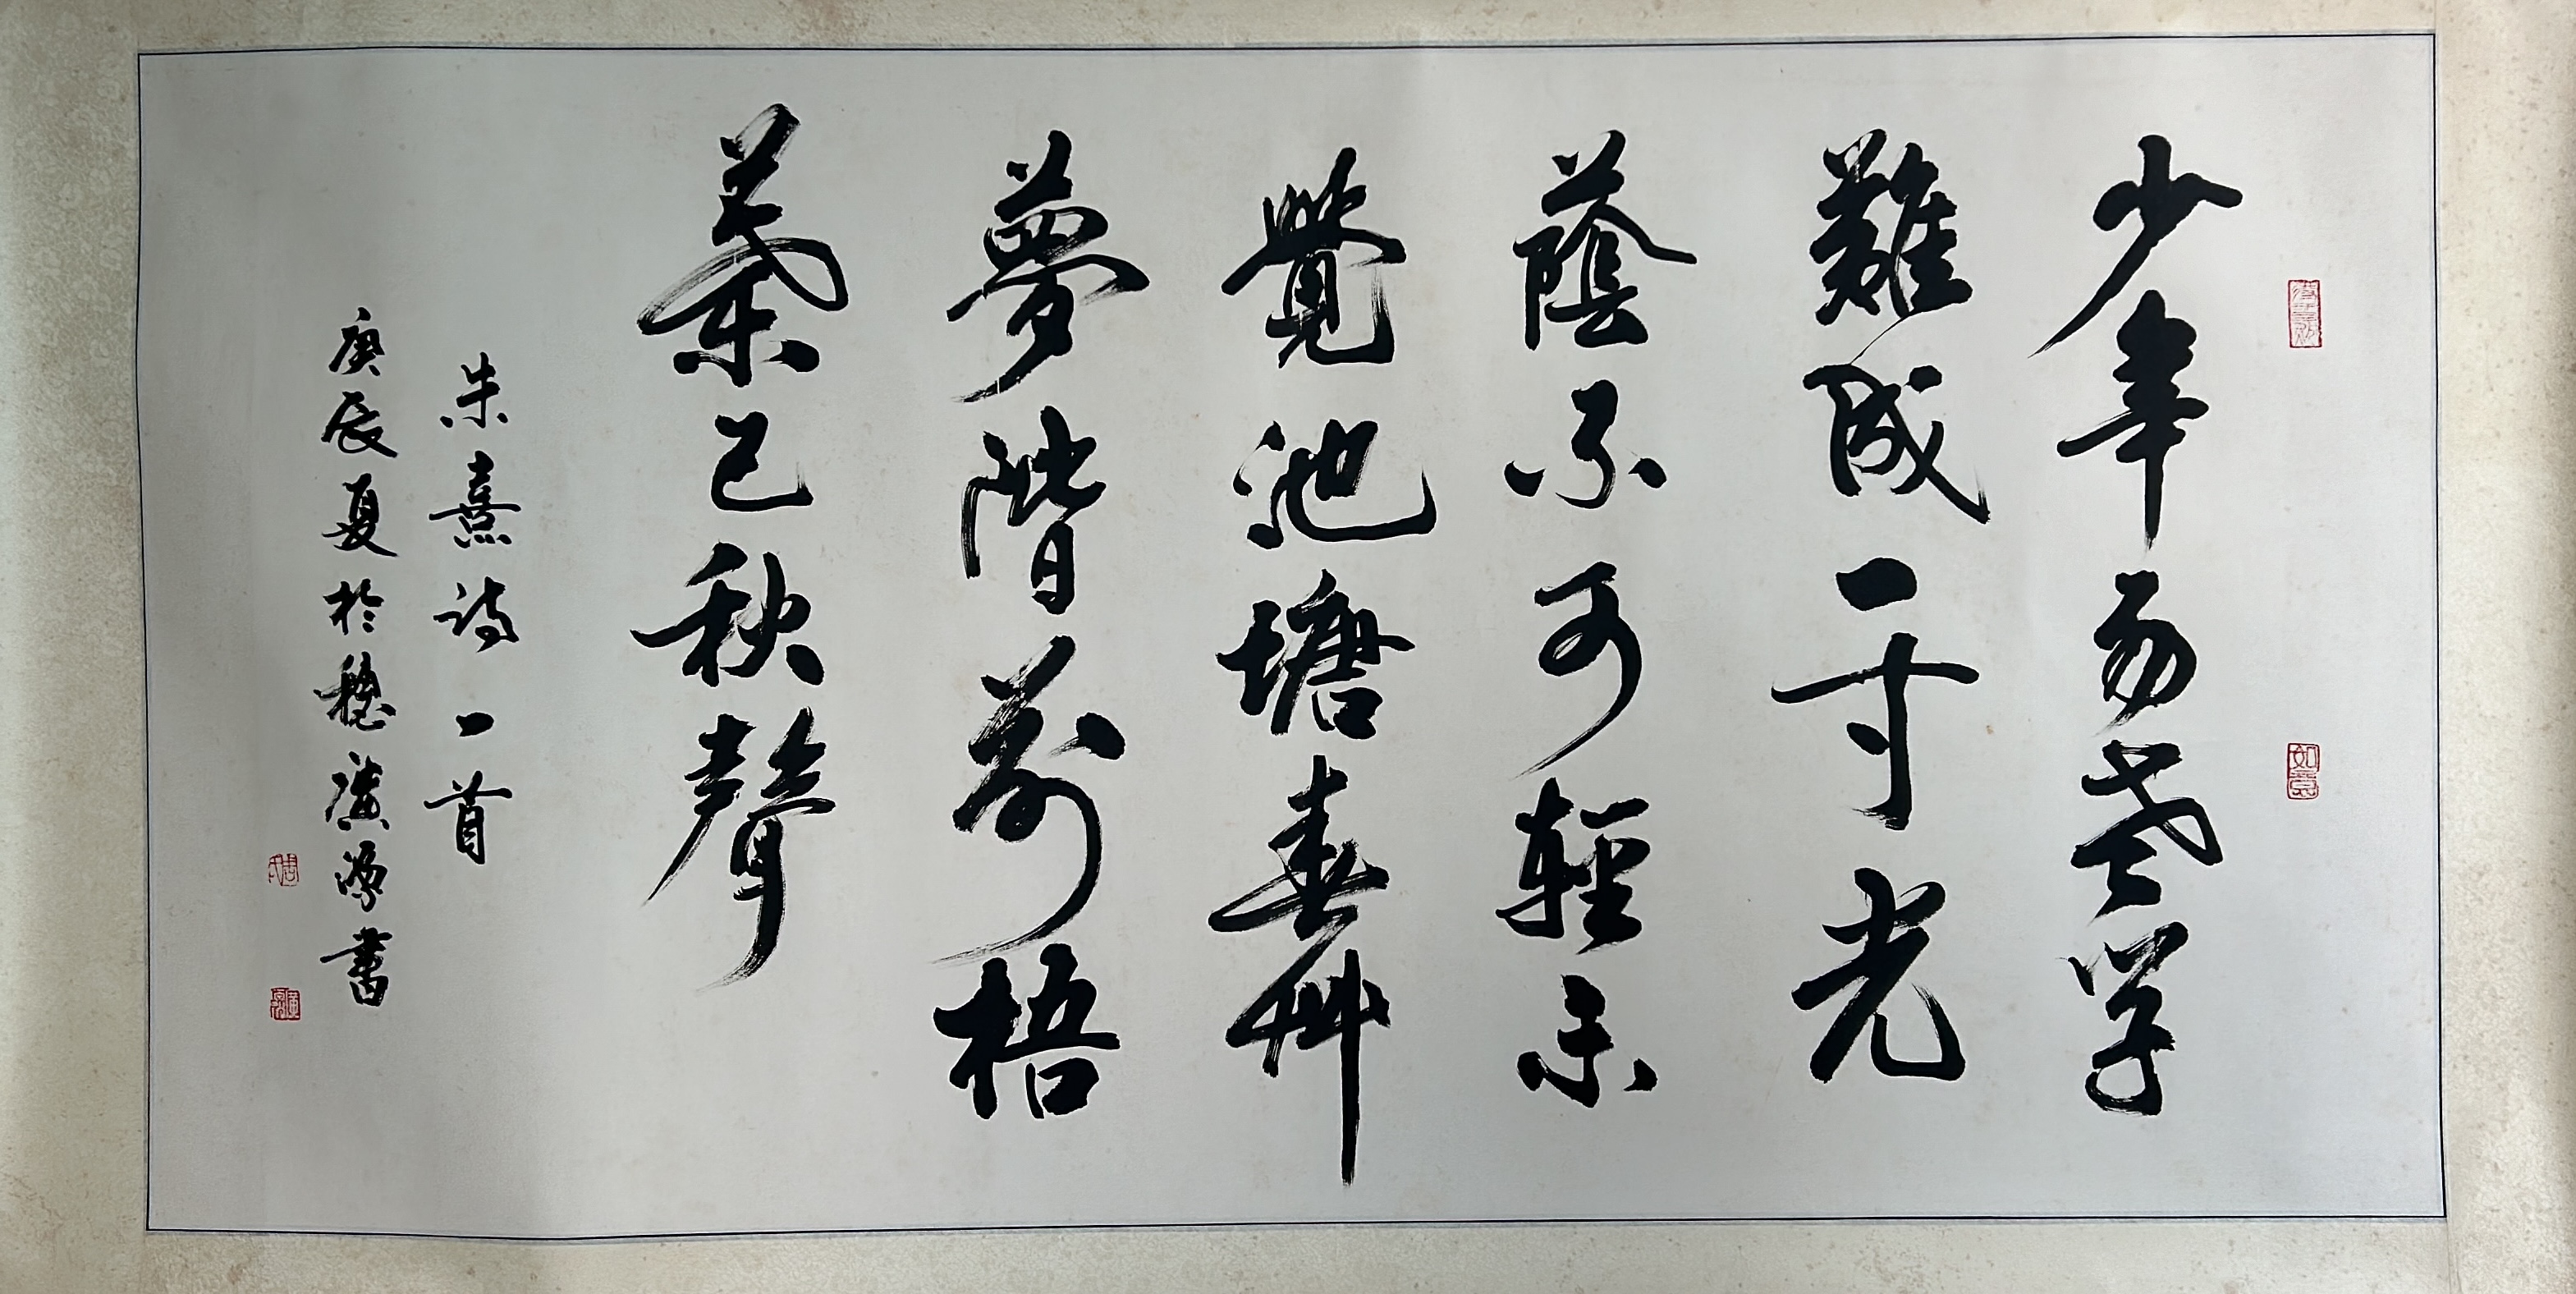 少年易老学
難成一寸光
蔭不可輕未
覺池塘春艸
夢階前梧
葉已秋聲
朱熹詩一首
庚辰夏於穗 源書
如意